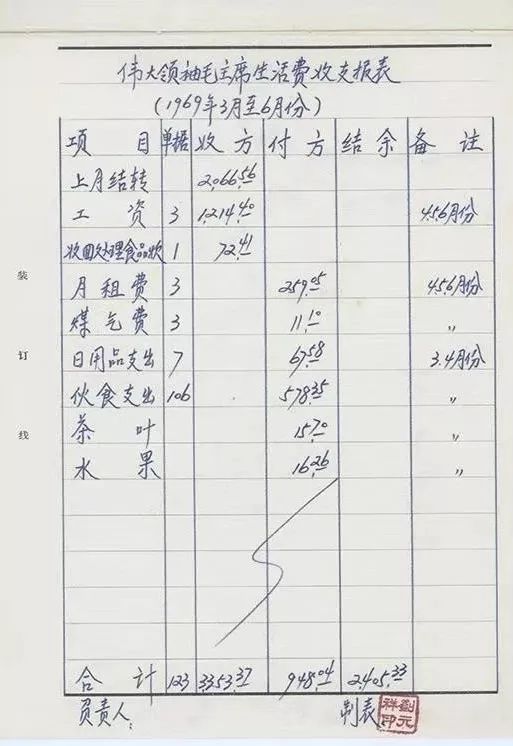 伟大领袖毛主席生活费收支报表
(1969年3月至6月份)
项目 单据 收方 付方 结余 备注
上月结转 2,066.56
工资 3 1,214.40 4.5.6月份
收回处理食品款 1 72.41
月租费 3 259.05 4.5.6月份
煤气费 3 11.10 〃
日用品支出 7 67.58 3.4月份
伙食支出 106 578.35 〃
茶叶 15.70 〃
水果 16.26 〃
合计 123 3353.37 948.04 2,405.33
负责人: 制表
劉元祥印
装
订
线